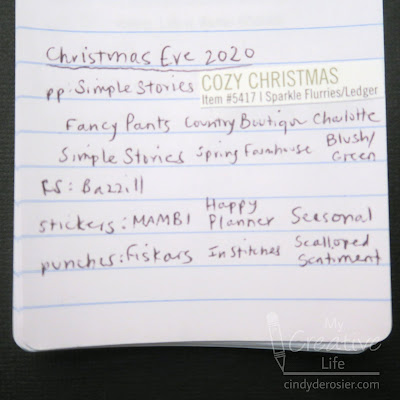 Christmas Eve 2020
pp: Simple Stories COZY CHRISTMAS
Item #5417 | Sparkle Flurries/Ledger
Fancy Pants Country Boutique Charlotte
Simple Stories Spring Farmhouse Blush/
Green
RS: Bazzill
stickers: MAMBI Happy
Planner Seasonal
punches: Fiskars Institches Scalloped
Sentiment
My
Creative
Life
cindyderosier.com